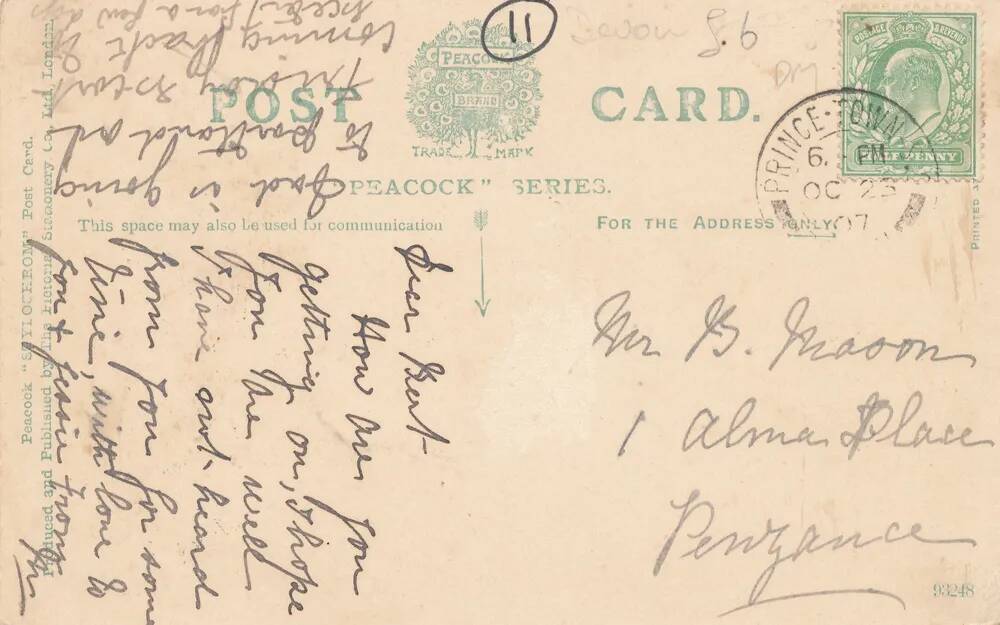 11
Devon
£6
POST CARD.
PEACOCK
BRAND
TRADE MARK
"PEACOCK" SERIES.
This space may also be used for communication
FOR THE ADDRESS ONLY
PRINCE-TOWN
6. PM
OC 23
07
POSTAGE & REVENUE
HALFPENNY
PRINTED
Dear Bert
How are you
getting on, I hope
you are well
I have not heard
from you for some
time, with love to
you & Jessie from
Dad is going
to Portland on
Friday
coming back
for a few days
Mr B. Mason
1 Alma Place
Penzance
93248
Peacock "STYLOCHROM" Post Card.
Produced and Published by The Pictorial Stationery Co., Ltd., London.